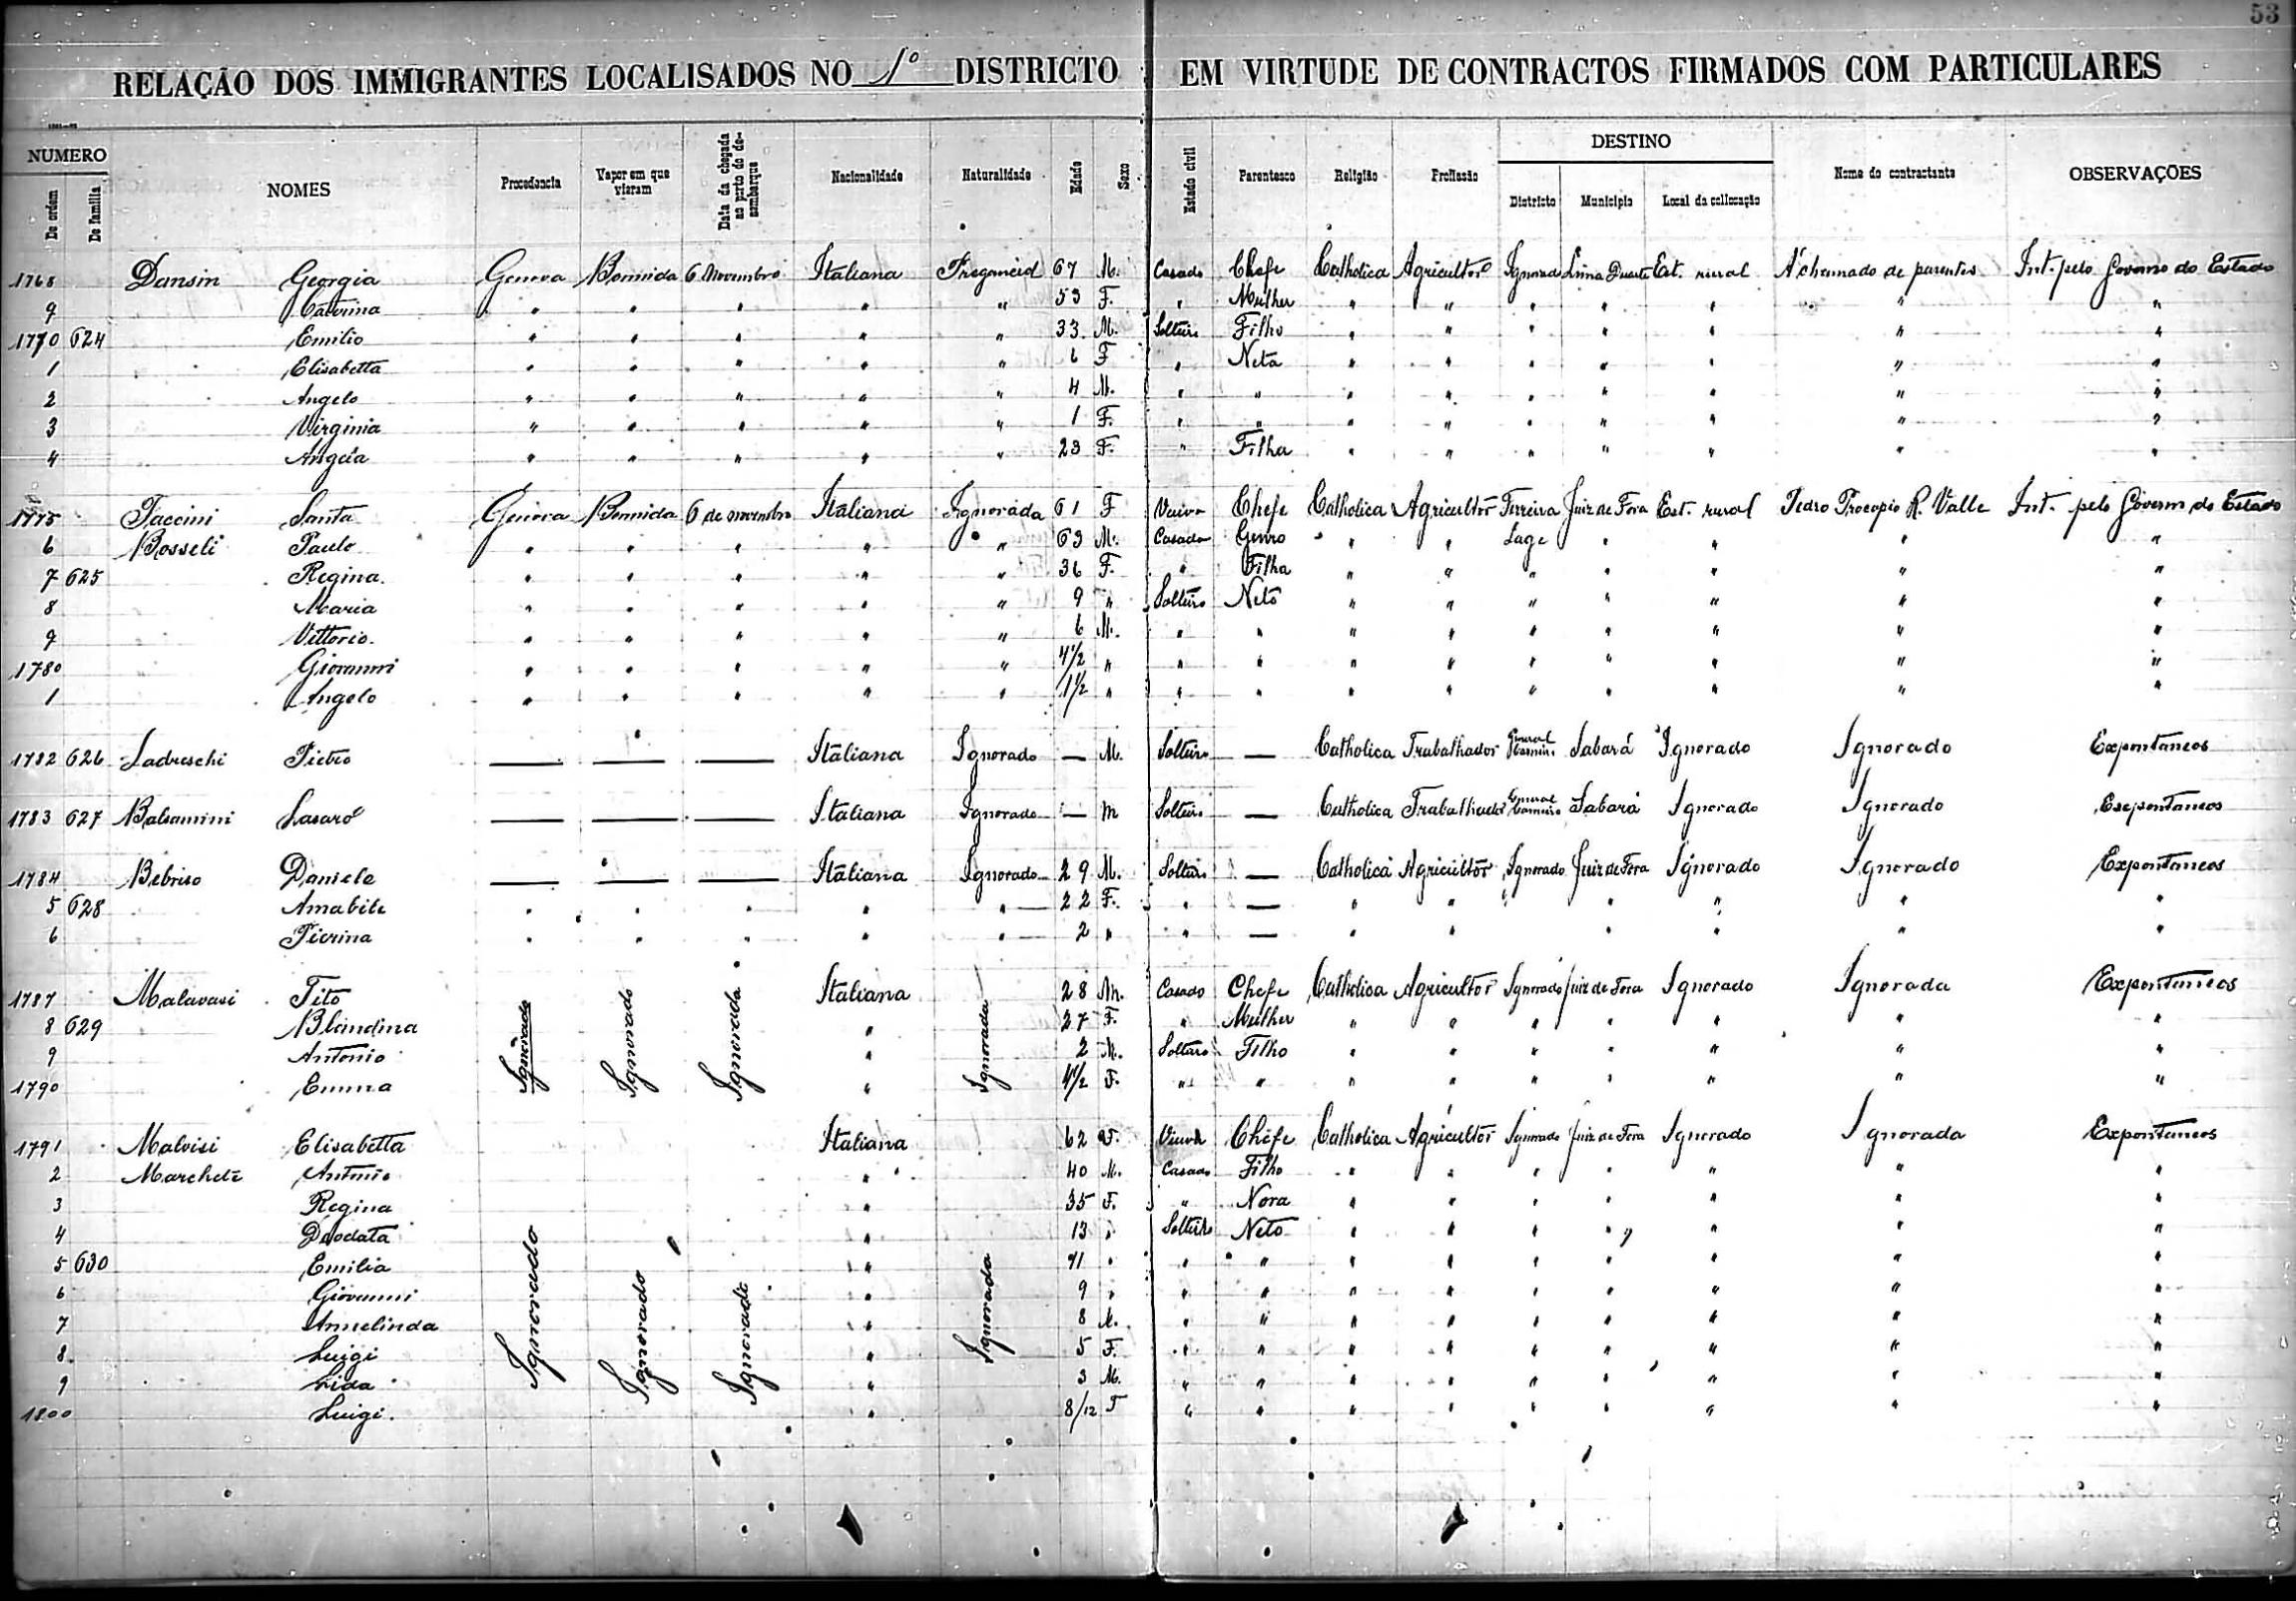 53
RELAÇÃO DOS IMMIGRANTES LOCALISADOS NO 1º DISTRICTO EM VIRTUDE DE CONTRACTOS FIRMADOS COM PARTICULARES
NUMERO
De ordem De familia NOMES Procedencia Vapor em que vieram Data da chegada ao porto do desembarque Nacionalidade Naturalidade Edade Sexo Estado civil Parentesco Religião Profissão DESTINO Districto Municipio Local da collocação Nome do contractante OBSERVAÇÕES
1768 Dansin Georgia Genova Bormida 6 Novembro Italiana 67 M. Casado Chefe Catholica Agricultor Ignorado Lima Duarte Est. rural A chamado de parentes Int. pelo Governo do Estado
9 Caterina " " " " " 53 F. " Mulher " " " " " " "
1770 624 Emilio " " " " " 33 M. Solteiro Filho " " " " " " "
1 Elisabetta " " " " " 6 F " Neta " " " " " " "
2 Angelo " " " " " 4 M. " " " " " " " " "
3 Virginia " " " " " 1 F. " " " " " " " " "
4 Angela " " " " " 23 F. " Filha " " " " " " "
1775 Taccini Santa Genova Bormida 6 de novembro Italiana Ignorada 61 F Viuva Chefe Catholica Agricultor Ferreira Juiz de Fora Est. rural Pedro Procopio R. Valle Int. pelo Governo do Estado
6 Bosseli Paulo " " " " " 63 M. Casado Genro " " Lage " " " "
7 625 Regina " " " " " 36 F. " Filha " " " " " " "
8 Maria " " " " " 9 " Solteiro Neto " " " " " " "
9 Vittorio. " " " " " 6 M. " " " " " " " " "
1780 Giovanni " " " " " 4 1/2 " " " " " " " " " "
1 Angelo " " " " " 1 1/2 " " " " " " " " " "
1782 626 Ladreschi Pietro — — — Italiana Ignorado — M. Solteiro — Catholica Trabalhador General Carneiro Sabará Ignorado Ignorado Expontaneos
1783 627 Balsamini Lasaro — — — Italiana Ignorado — M Solteiro — Catholica Trabalhador General Carneiro Sabará Ignorado Ignorado Expontaneos
1784 Bebriso Daniele — — — Italiana Ignorado 29 M. Solteiro — Catholica Agricultor Ignorado Juiz de Fora Ignorado Ignorado Expontaneos
5 628 Amabile " " " " " 22 F. " — " " " " " " "
6 Pierina " " " " " 2 " " — " " " " " " "
1787 Malavasi Tito Ignorado Ignorado Ignorada Italiana Ignorada 28 M. Casado Chefe Catholica Agricultor Ignorado Juiz de Fora Ignorado Ignorada Expontaneos
8 629 Blandina " 27 F. " Mulher " " " " " " "
9 Antonio " 2 M. Solteiro Filho " " " " " " "
1790 Emma " 4 1/2 F. " " " " " " " " "
1791 Malvisi Elisabetta Ignorado Ignorado Ignorado Italiana Ignorada 62 F. Viuva Chefe Catholica Agricultor Ignorado Juiz de Fora Ignorado Ignorada Expontaneos
2 Marcheti Antonio " 40 M. Casado Filho " " " " " " "
3 Regina " 35 F. " Nora " " " " " " "
4 Deodata " 13 " Solteiro Neto " " " " " " "
5 630 Emilia " 11 " " " " " " " " " "
6 Giovanni " 9 " " " " " " " " " "
7 Annelinda " 8 M. " " " " " " " " "
8. Luigi " 5 F. " " " " " " " " "
9 Lida " 3 M. " " " " " " " " "
1800 Luigi. " 8/12 F " " " " " " " " "